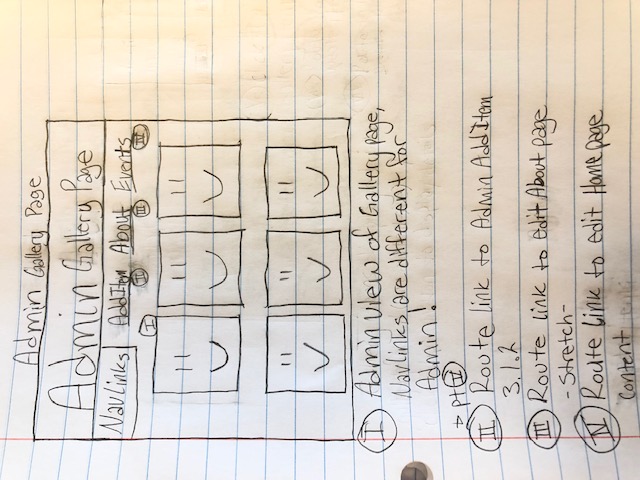 Admin Gallery Page
Admin Gallery Page
NavLinks AddItem About Events
I II III IV
I Admin view of Gallery page,
NavLinks are different for
Admin!
→ pt IV
II Route link to Admin AddItem
3.1.2
III Route link to edit About page
- Stretch -
IV Route link to edit Home page
content